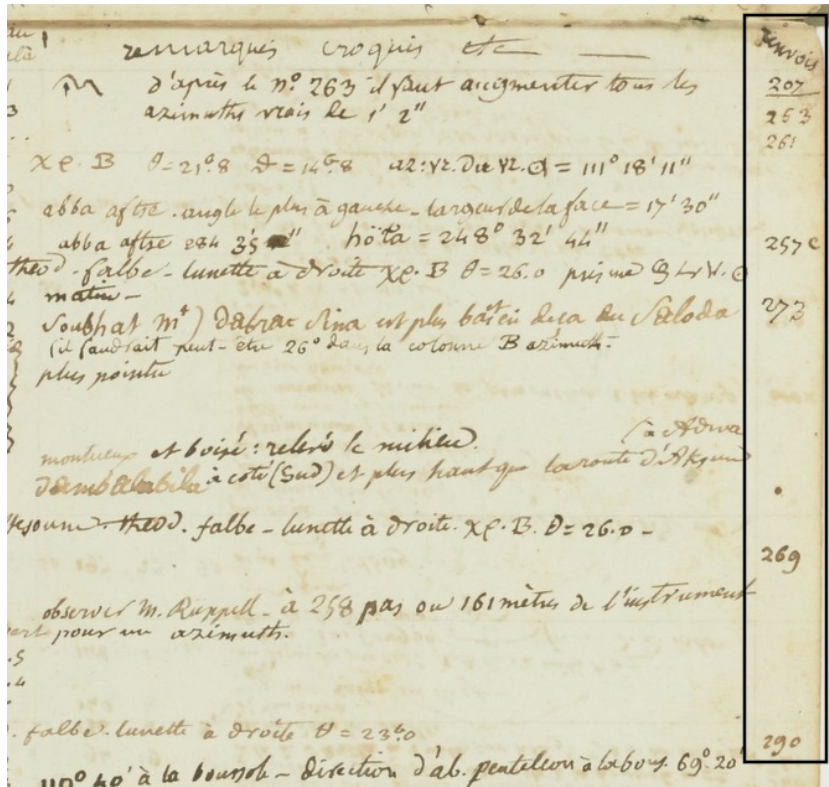 remarques croquis etc — renvois
d'après le nº 263 il faut augmenter tous les 207
azimuths vrais de 1' 2" 263
261
χρ. B θ=21º.8 az: vr. du vr. = 111º 18' 11"
abba aftse. angle le plus à gauche - largeur de la face = 17' 30"
abba aftse 284 35 hôta = 248º 32' 44" 257 c
theod - falbe - lunette à droite χρ. B θ=26.0 prisme
matin -
Soubhat mt) dabrac Sina est plus bas et en deça du Saloda 273
(il faudrait peut-être 26º dans la colonne B azimuth.
plus pointu
(à Adwa
montueux et boisé: relevé le milieu.
à coté (Sud) et plus haut que la route d'Aksum
theod. falbe - lunette à droite. χρ. B. θ=26.0 -
269
observer M. Ruppell - à 258 pas ou 161 mètres de l'instrument
pour un azimuth.
.5
.4
falbe. lunette à droite θ = 23º.0
290
110º 40' à la boussole - direction d'ab. pentaleon à la bous. 69º.20'